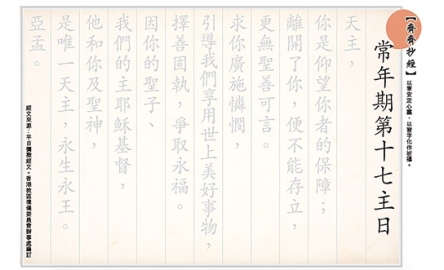 【齊齊抄經】
以筆安定心靈，以習字化作祈禱。
常年期第十七主日
天主，
你是仰望你者的保障；
離開了你，便不能存立，
更無聖善可言。
求你廣施憐憫，
引導我們享用世上美好事物，
擇善固執，爭取永福。
因你的聖子、
我們的主耶穌基督，
他和你及聖神，
是唯一天主，永生永王。
亞孟。
經文來源：平日彌撒經文，香港教區禮儀委員會辦事處編訂